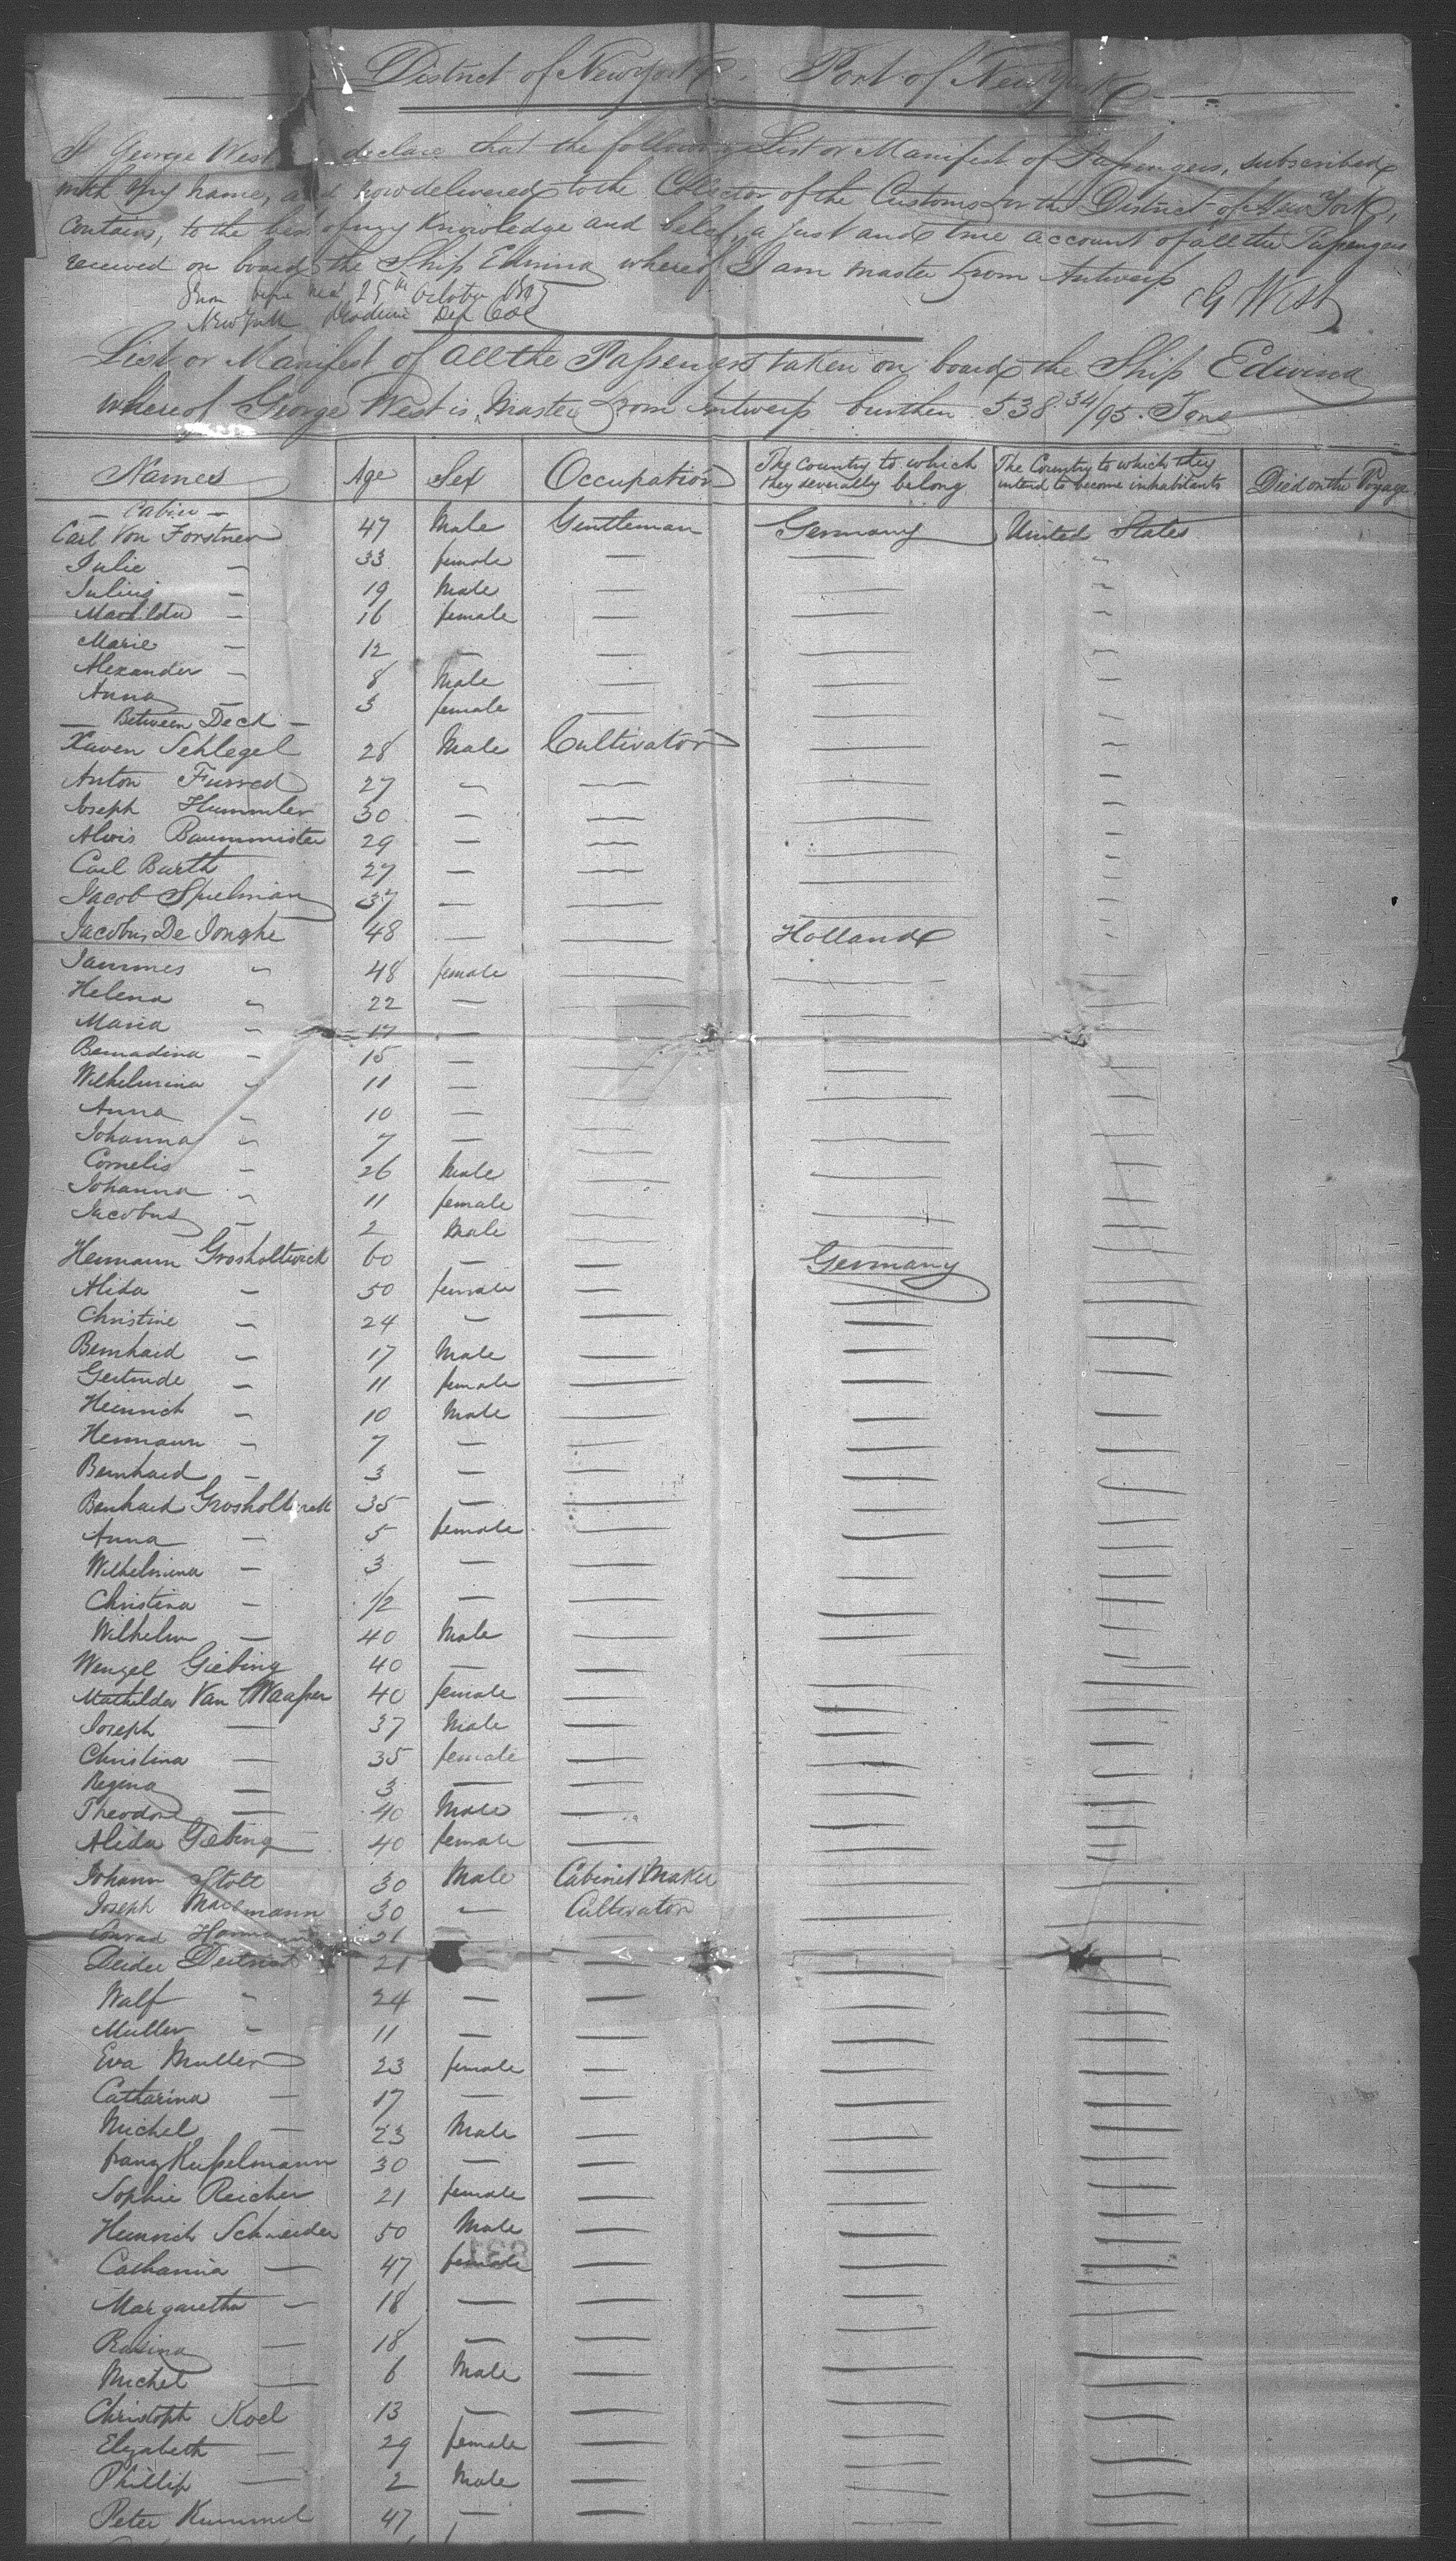 District of New York. Port of New York
I George West declare that the following List or Manifest of Passengers, subscribed
with my name, and now delivered to the Collector of the Customs for the District of New York,
contains, to the best of my Knowledge and belief, a just and true account of all the Passengers
received on board the Ship Edwina whereof I am master from Antwerp
25th October G West
New York
List or Manifest of all the Passengers taken on board the Ship Edwina
whereof George West is Master from Antwerp burthen 538 34/95 Tons
Names Age Sex Occupation The Country to which they severally belong The Country to which they intend to become inhabitants Died on the Voyage
— Cabin —
Carl Von Forstner 47 Male Gentleman Germany United States
Julie — 33 female — — "
Julius — 19 Male — — "
Mathilda — 16 female — — "
Marie — 12 — — — "
Alexander — 8 Male — — "
Anna — 3 female — — "
— Between Deck —
Xaven Schlegel 28 Male Cultivator — —
Anton Furred 27 — — — —
Joseph Hummler 30 — — — —
Alois Baummister 29 — — — —
Carl Barth 27 — — — —
Jacob Spielman 37 — — — —
Jacobus De Jonghe 48 — — Holland —
Jammes " 48 female — — —
Helena " 22 — — — —
Maria " 17 — — — —
Bernadina " 15 — — — —
Wilhelmina " 11 — — — —
Anna " 10 — — — —
Johanna " 7 — — — —
Cornelis " 26 Male — — —
Johanna " 11 female — — —
Jacobus — 2 Male — — —
Hermann Grosholtwick 60 — — Germany —
Alida — 50 female — — —
Christine — 24 — — — —
Bernhard — 17 Male — — —
Gertrude — 11 female — — —
Heinrich — 10 Male — — —
Hermann — 7 — — — —
Bernhard — 3 — — — —
Benhard Grosholtwick 35 — — — —
Anna — 5 female — — —
Wilhelmina — 3 — — — —
Christina — 1/2 — — — —
Wilhelm — 40 Male — — —
Wenzel Giebing 40 — — — —
Mathilda Van Waasser 40 female — — —
Joseph — 37 Male — — —
Christina — 35 female — — —
Regina — 3 — — — —
Theodore — 40 Male — — —
Alida Giebing 40 female — — —
Johann Stolt 30 Male Cabinet Maker — —
Joseph Mausmann 30 — Cultivator — —
Conrad 21 — — — —
21 — — — —
Walf " 24 — — — —
Muller — 11 — — — —
Eva Muller 23 female — — —
Catharina — 17 — — — —
Michel — 23 Male — — —
Franz Kusselmann 30 — — — —
Sophie Reicher 21 female — — —
Heinrich Schneider 50 Male — — —
Catharina — 47 female — — —
Margaretha — 18 — — — —
Rosina — 18 — — — —
Michel — 6 Male — — —
Christoph Koel 13 — — — —
Elizabeth — 29 female — — —
Phillip — 2 Male — — —
Peter Kummel 47 — — — —